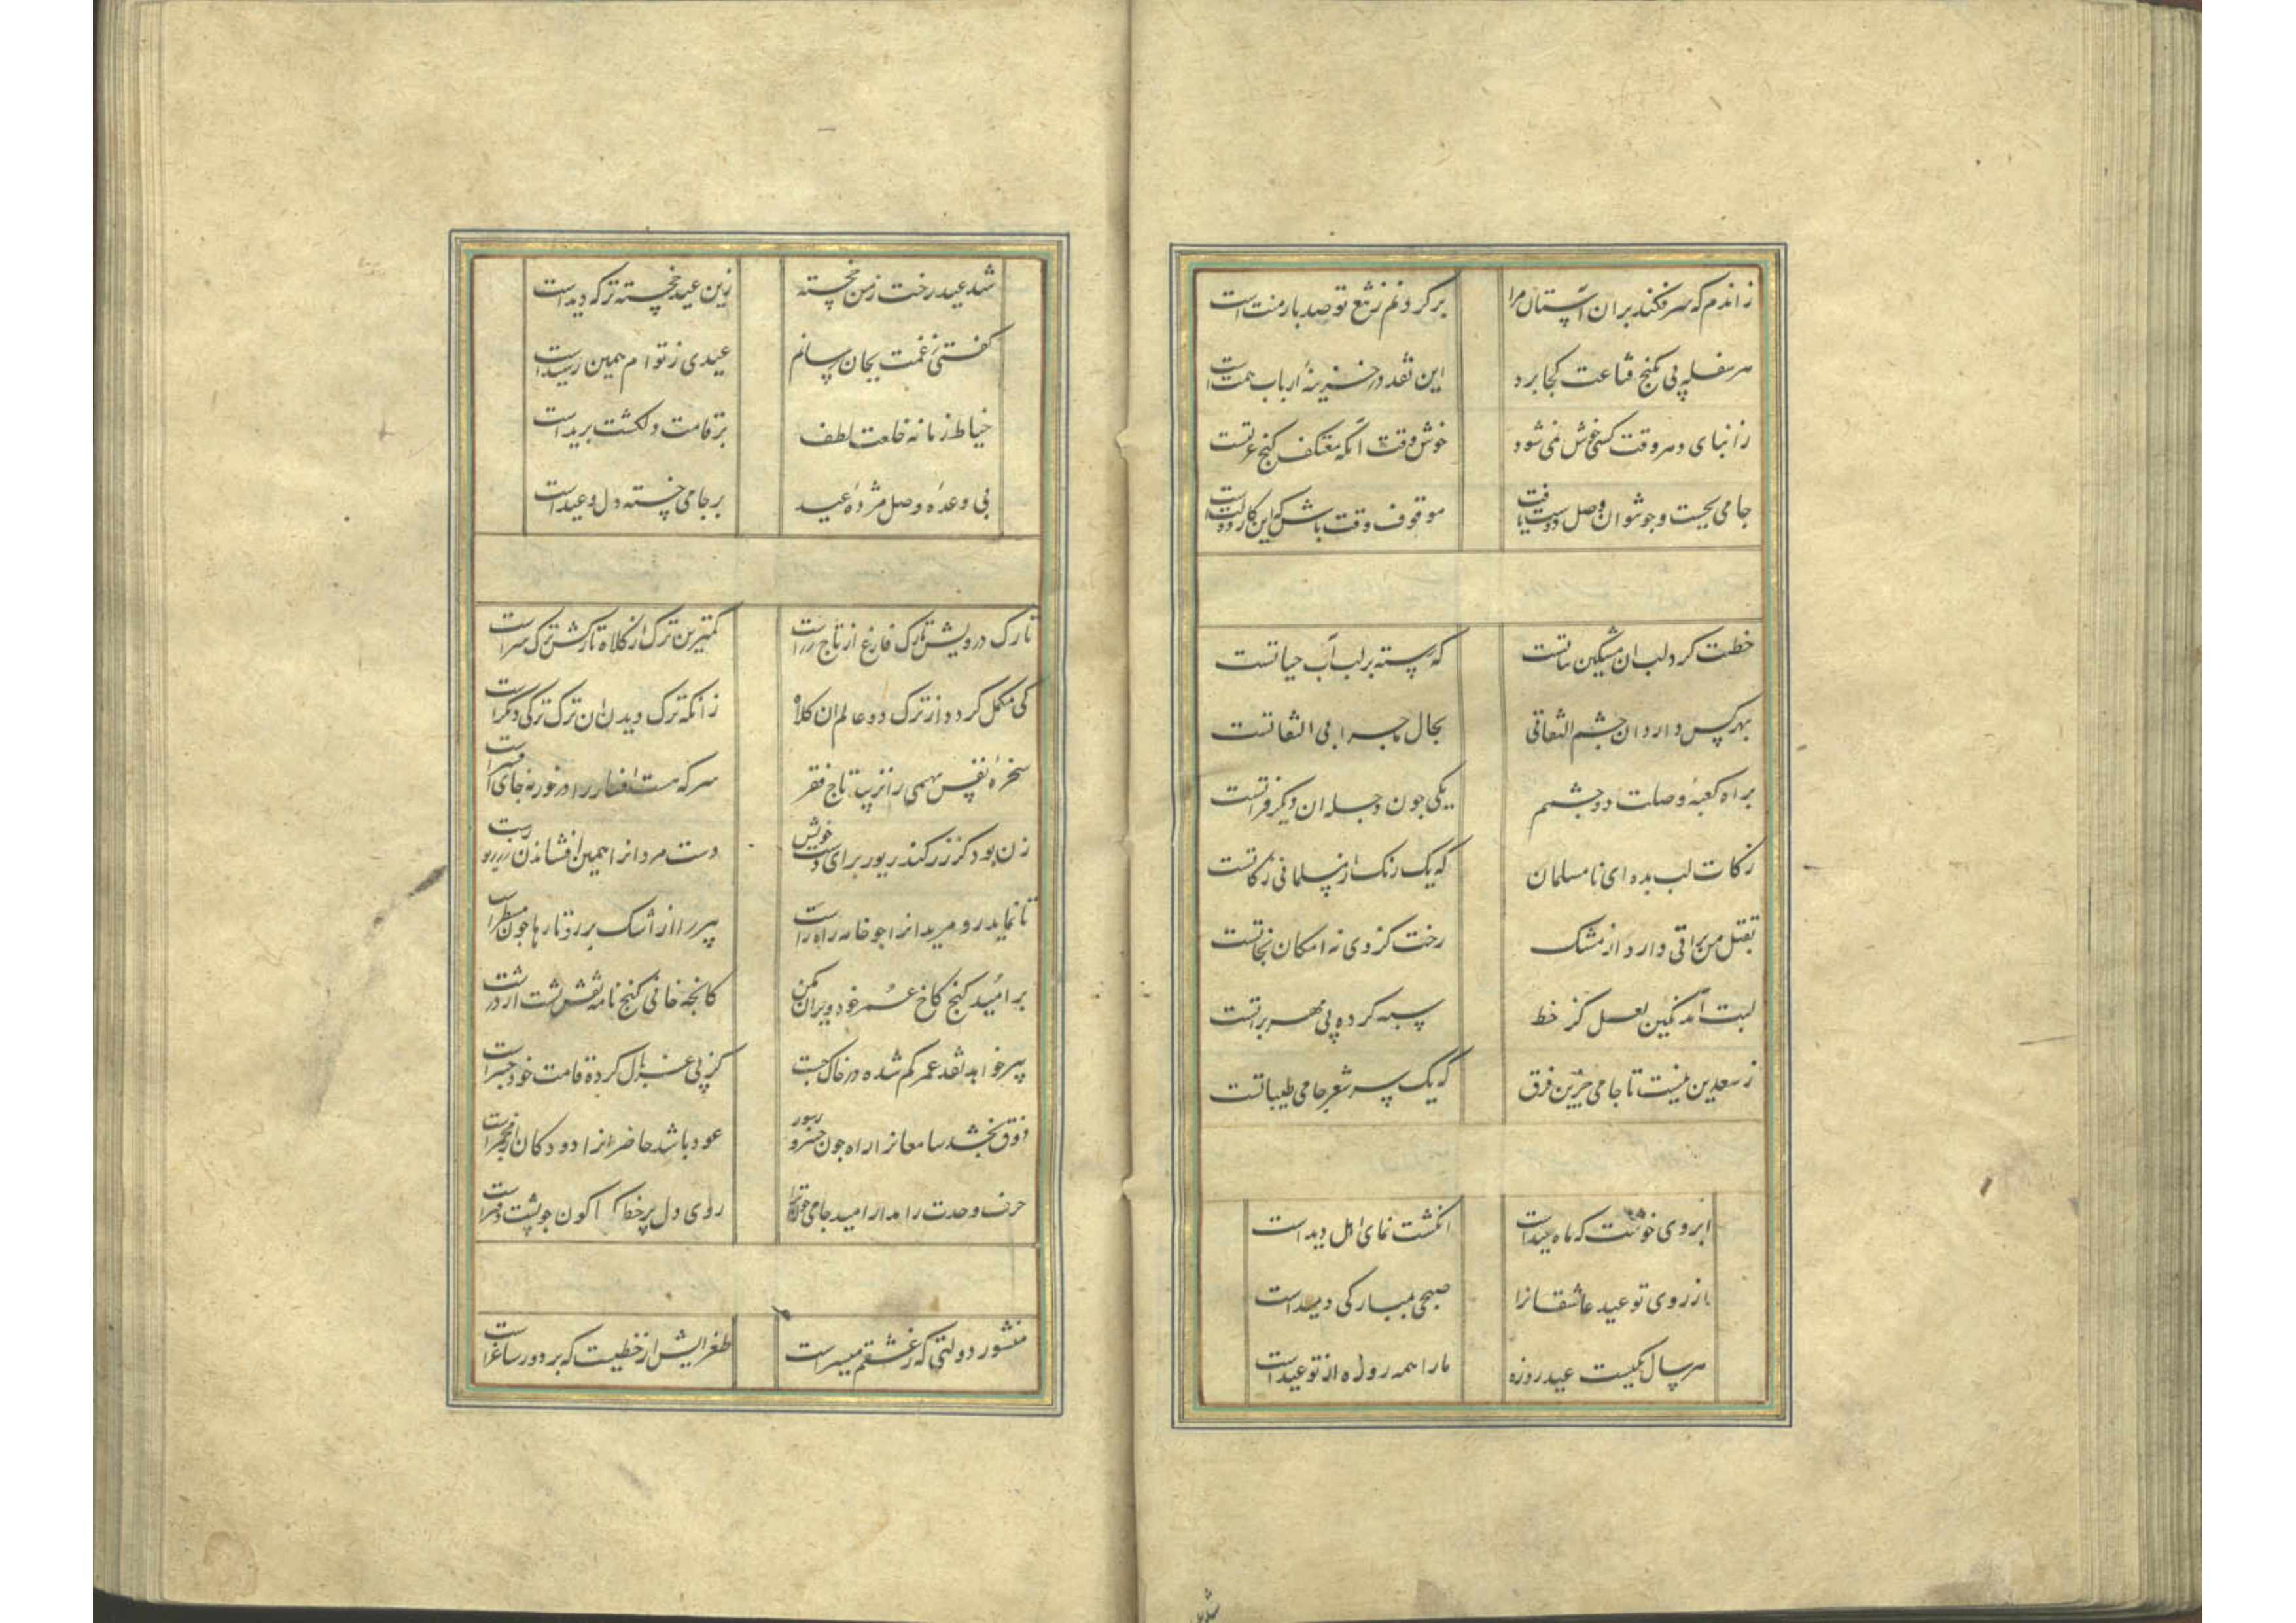 زاندم که سر فکند بران آستان مرا برگردنم ز تیغ تو صد بار منت است
هر سفله پی بکنج قناعت کجا برد این نقد در خزینهٔ ارباب همت است
زابنای دهر وقت کسی خوش نمی شود خوش وقت آنکه معتکف کنج عزلتست
جامی بجست و جو نتوان وصل دوست یافت موقوف وقت باش که این کار دولت است
خطت کرد لب ان مشکین نباتست که رسته بر لب آب حیاتست
بهر کس دارد ان چشم التفاتی بحال ما چرا بی التفاتست
براه کعبهٔ وصلت دو چشمم یکی چون دجله ان دیگر فراتست
زکات لب بده ای نامسلمان که یک رکن از مسلمانی زکاتست
بقتل من براتی دارد از مشک رخت کز وی نه امکان نجاتست
لبت آمد نگین لعل کز خط سیه کرده پی مهر براتست
ز سعدی نیست تا جامی جز این فرق که یک سر شعر جامی طیباتست
ابروی خوشت که ماه عید است انگشت نمای اهل دید است
از روی تو عید عاشقانرا صبحی بمبارکی دمید است
هر سال یکیست عید روزه ما را همه روزه از تو عید است
شد عید رخت ز من خجسته زین عید خجسته تر که دید است
گفتی ز غمت بجان رسانم عیدی ز تو ام همین رسید است
خیاط زمانه خلعت لطف بر قامت دلکشت برید است
بی وعدهٔ وصل مژدهٔ عید بر جامی خسته دل وعید است
تارک درویش تارک فارغ از تاج زر است کمترین ترک از کلاه تارکش ترک سر است
کی مکمل گردد از ترک دو عالم ان کلاه زانکه ترک دیدن ان ترک ترکی دیگر است
سخرهٔ نفس بهیمی را نزیبد تاج فقر سر که هست افسار را در خور نه جای افسر است
زن بود کز زر کند زیور برای دست خویش دست مردانرا همین افشاندن زر زیور است
تا نماید رو مریدانرا چو خامه راه راست پیر را از اشک بر رو تارها چون مسطر است
بر امید گنج کاخ عمر خود ویران مکن کانچه خوانی گنج نامه نقش پشت اژدر است
پیر خواهد نقد عمر گم شده در خاک جست کز پی غربال کرده قامت خود چنبر است
ذوق بخشد سامعانرا راه چون خسرو بود عود باشد حاضرانرا دود کان از مجمر است
حرف وحدت را مدار امید جامی روی دل پر خط اکنون چو پشت دفتر است
منشور دولتی که ز عشقم میسر است طغرایش از خطیست که بر دور ساغر است